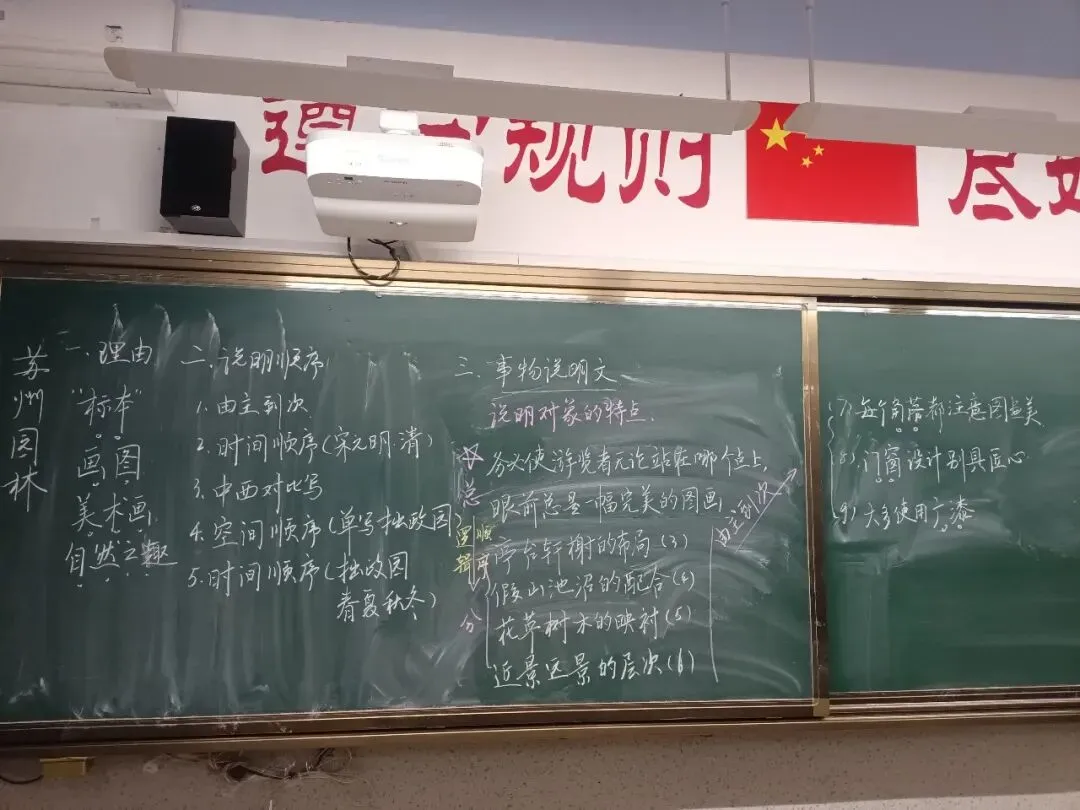 规则
尽
苏州园林
一.理由
"标本"
画图
美术画
自然之趣
二.说明顺序
1.由主到次
2.时间顺序(宋元明清)
3.中西对比写
4.空间顺序(单写拙政园)
5.时间顺序(拙政园
春夏秋冬)
三.事物说明文
说明对象的特点.
务必使游览者无论站在哪个点上,
眼前总是一幅完美的图画
总
分
逻辑
顺序
亭台轩榭的布局(3)
假山池沼的配合(4)
花草树木的映衬(5)
近景远景的层次(6)
由主到次
(7)每个角落都注意图画美
(8)门窗设计别具匠心
(9)大多使用广漆